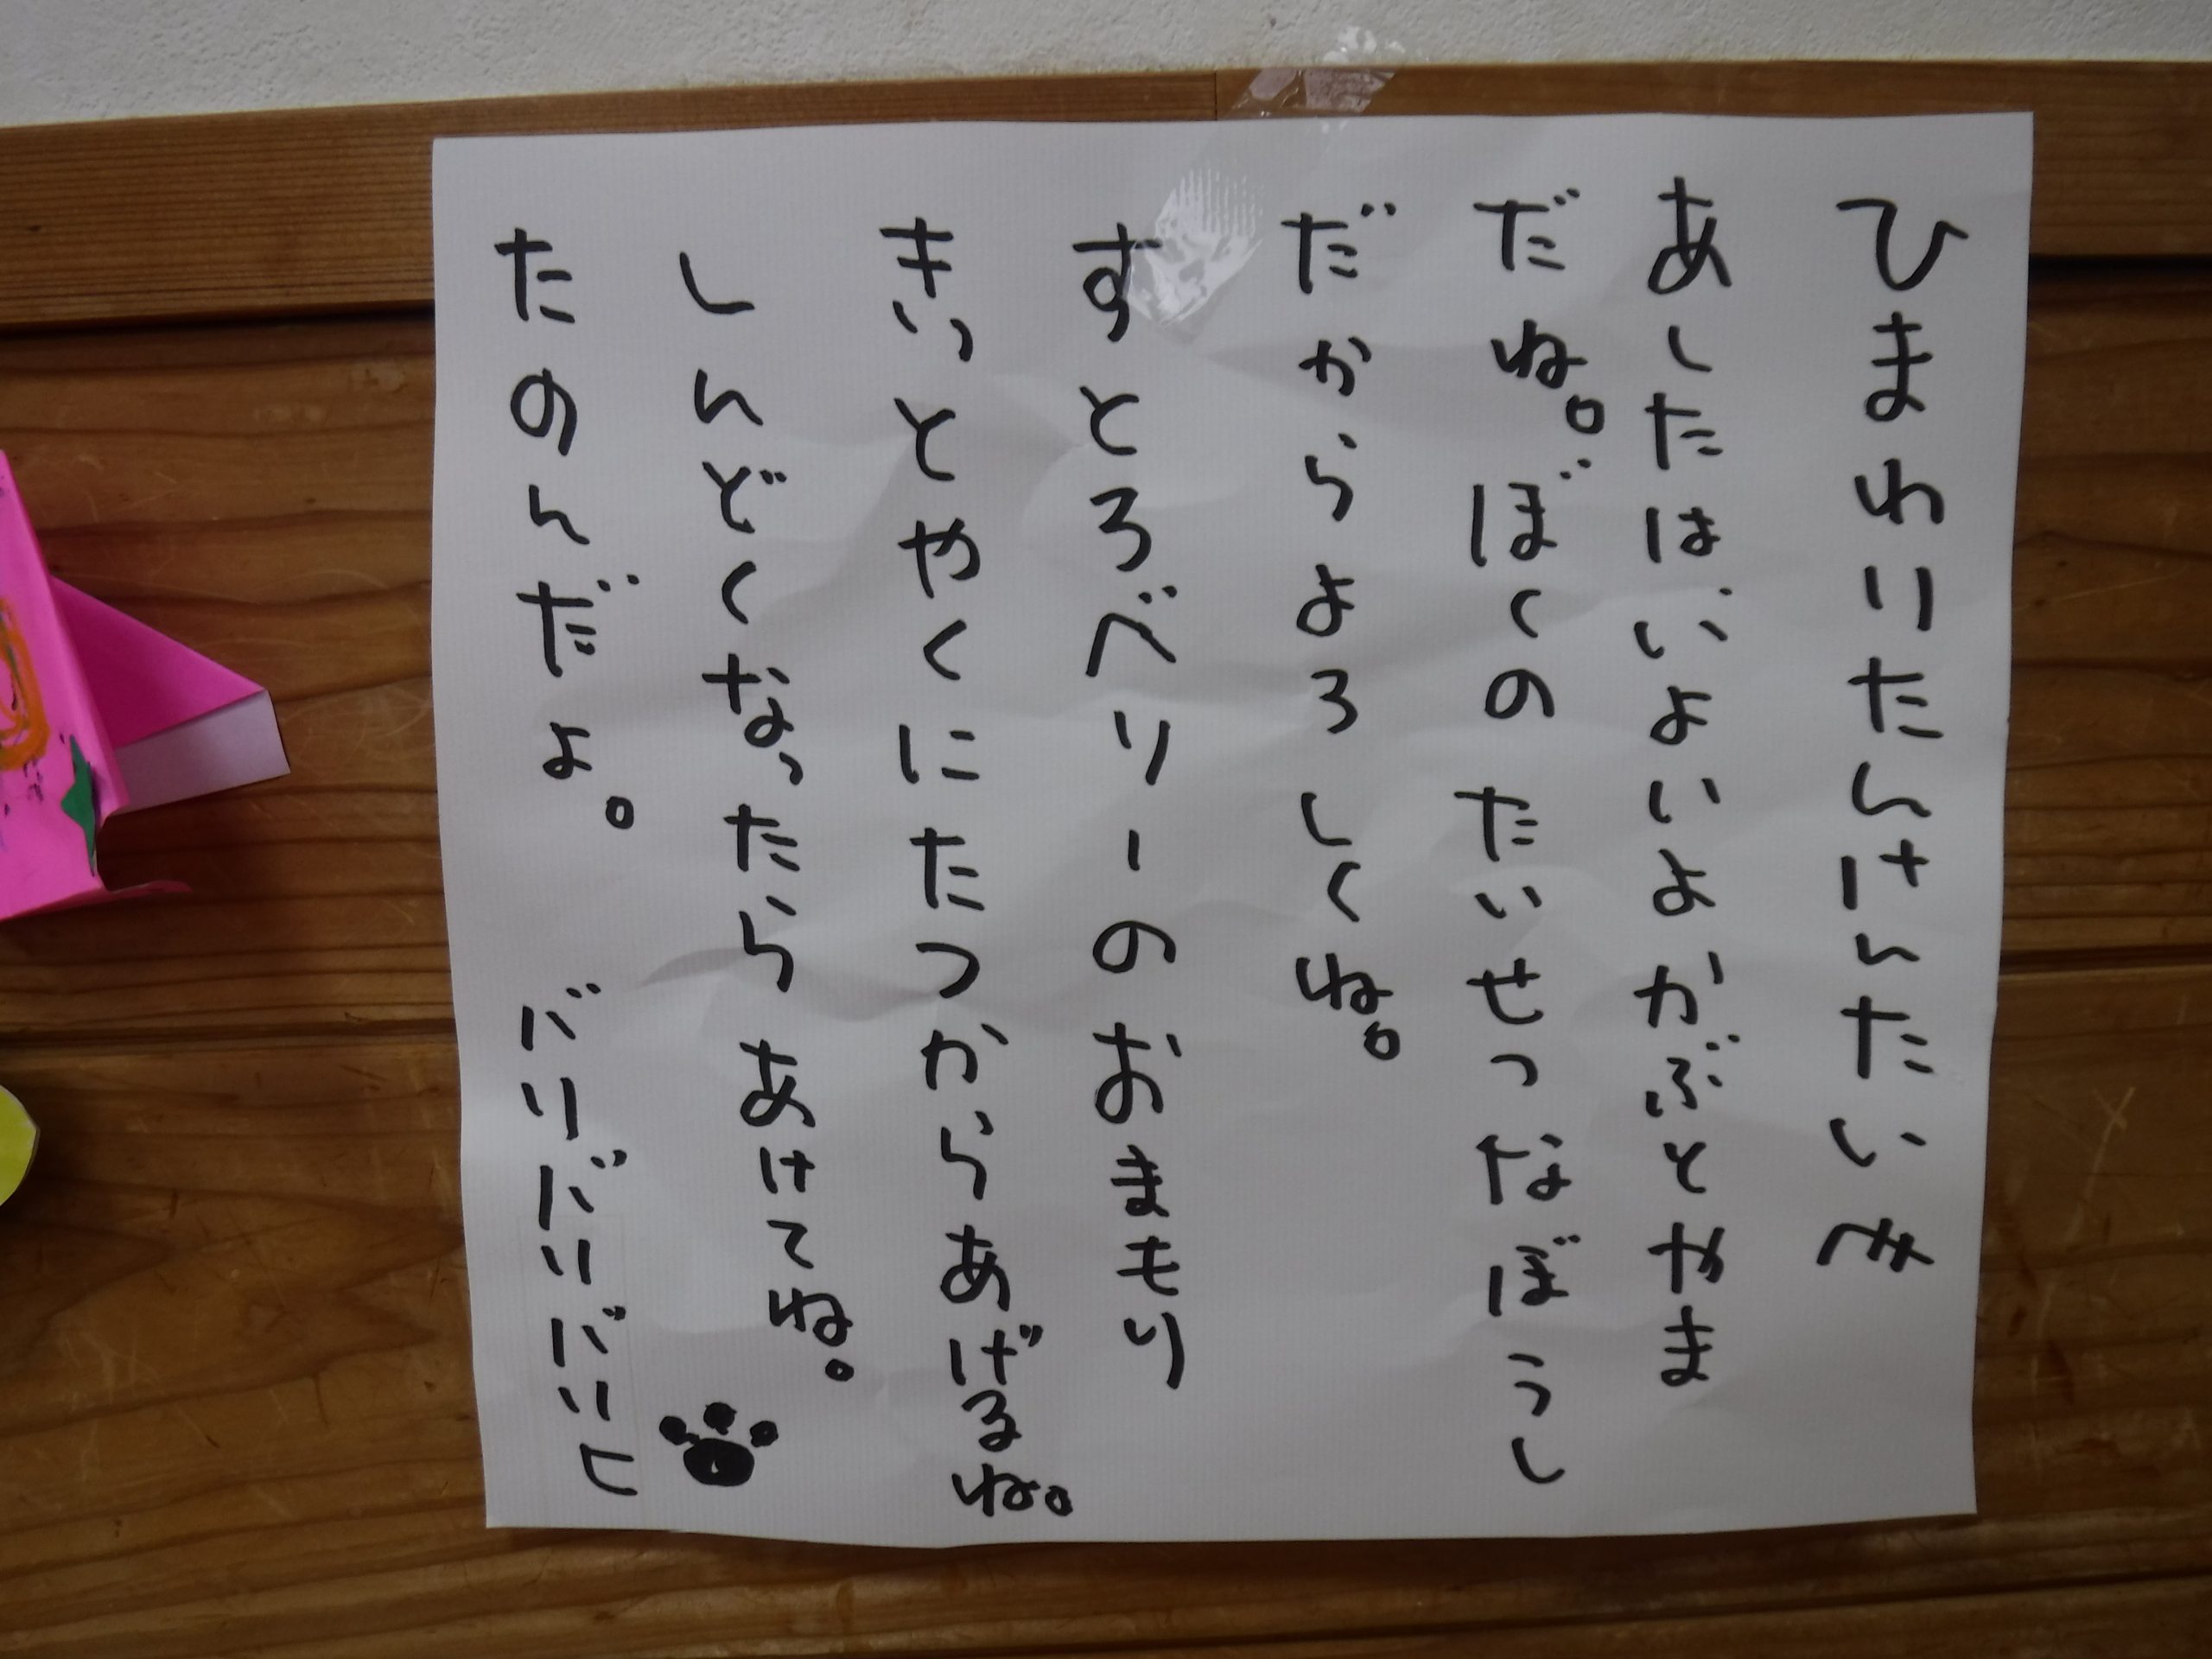 ひまわりたんけんたいへ
あしたはいよいよかぶとやま
だね。ぼくのたいせつなぼうし
だからよろしくね。
すとろべりーのおまもり
きっとやくにたつからあげるね。
しんどくなったらあけてね。
たのんだよ。 バリバリバリヒ